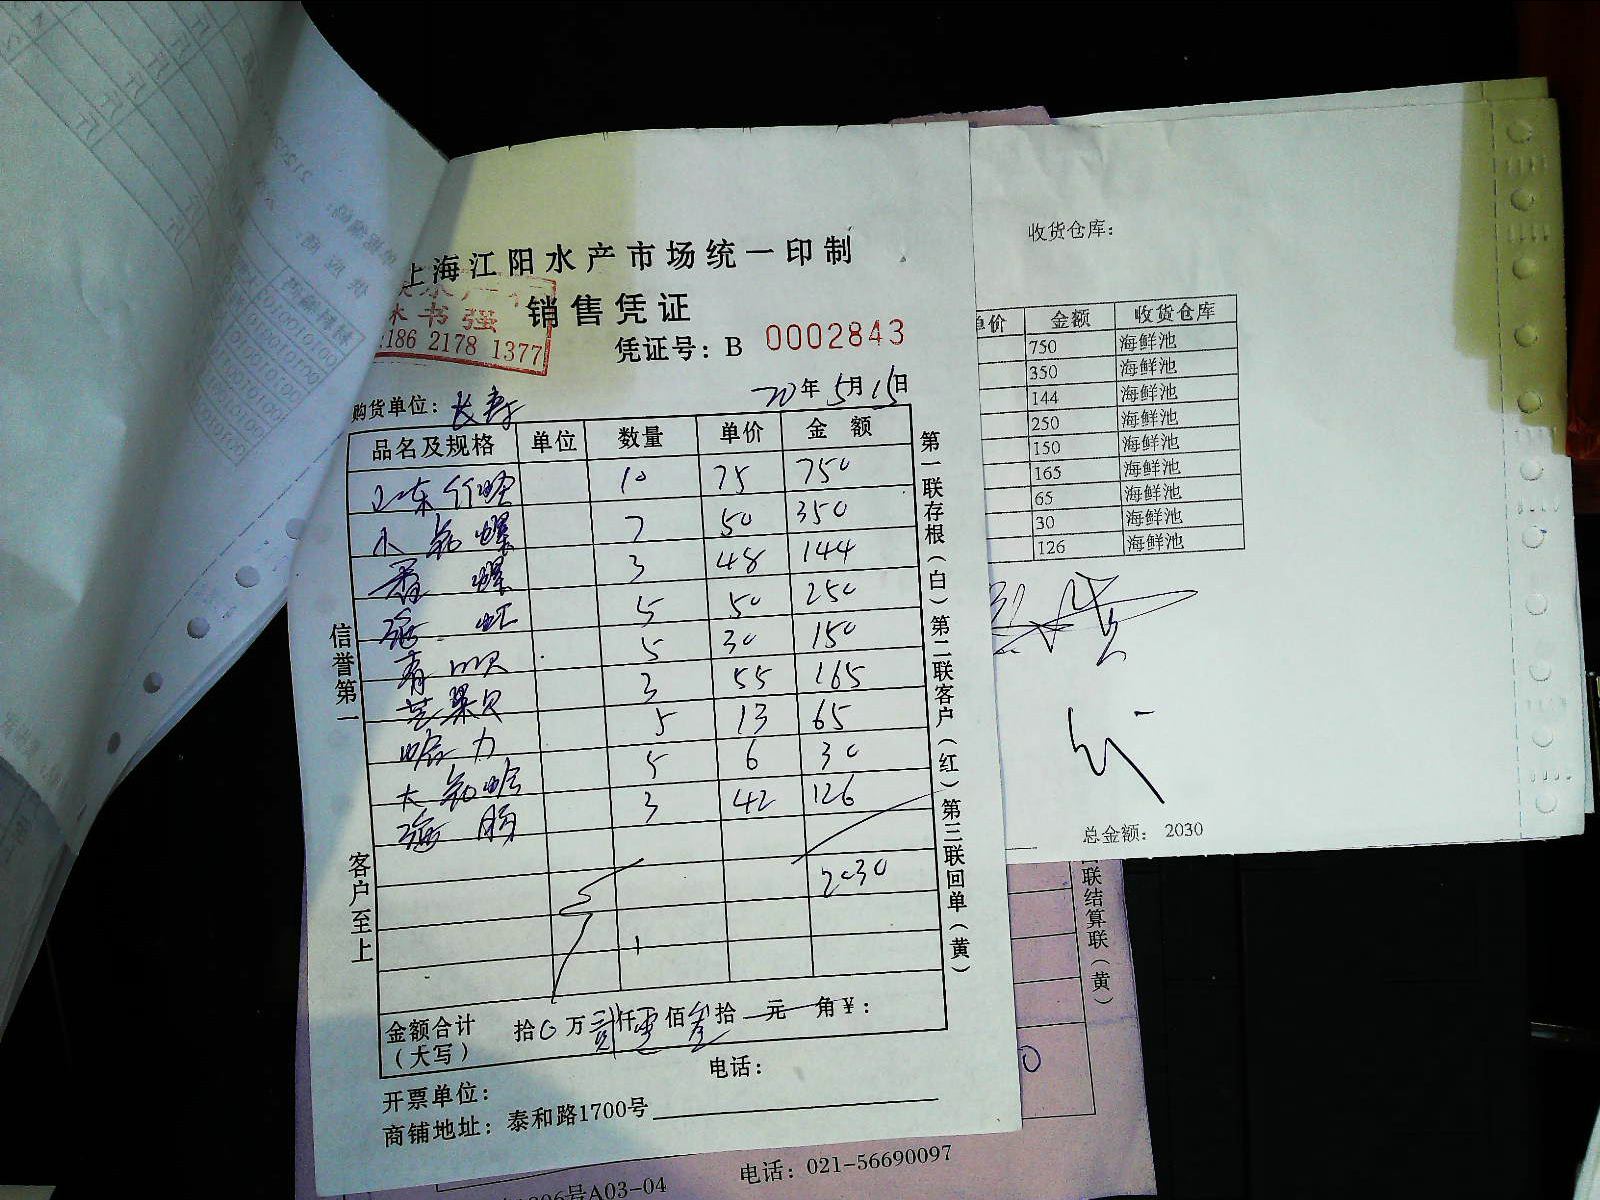 上海江阳水产市场统一印制
销售凭证
书强
186 2178 1377
凭证号：B 0002843
购货单位：长寿 20年5月15日
品名及规格 单位 数量 单价 金额
山东竹蛏 10 75 750
小鲍螺 7 50 350
香螺 3 48 144
海虹 5 50 250
青口贝 5 30 150
芒果贝 3 55 165
蛤力 5 13 65
大鲍蛤 5 6 30
海肠 3 42 126
2030
金额合计（大写） 拾0万贰仟零佰叁拾元角¥：
电话：
开票单位：
商铺地址：泰和路1700号
信誉第一
客户至上
第一联存根（白）第二联客户（红）第三联回单（黄）
收货仓库：
单价 金额 收货仓库
750 海鲜池
350 海鲜池
144 海鲜池
250 海鲜池
150 海鲜池
165 海鲜池
65 海鲜池
30 海鲜池
126 海鲜池
总金额： 2030
联结算联（黄）
电话：021-56690097
号A03-04